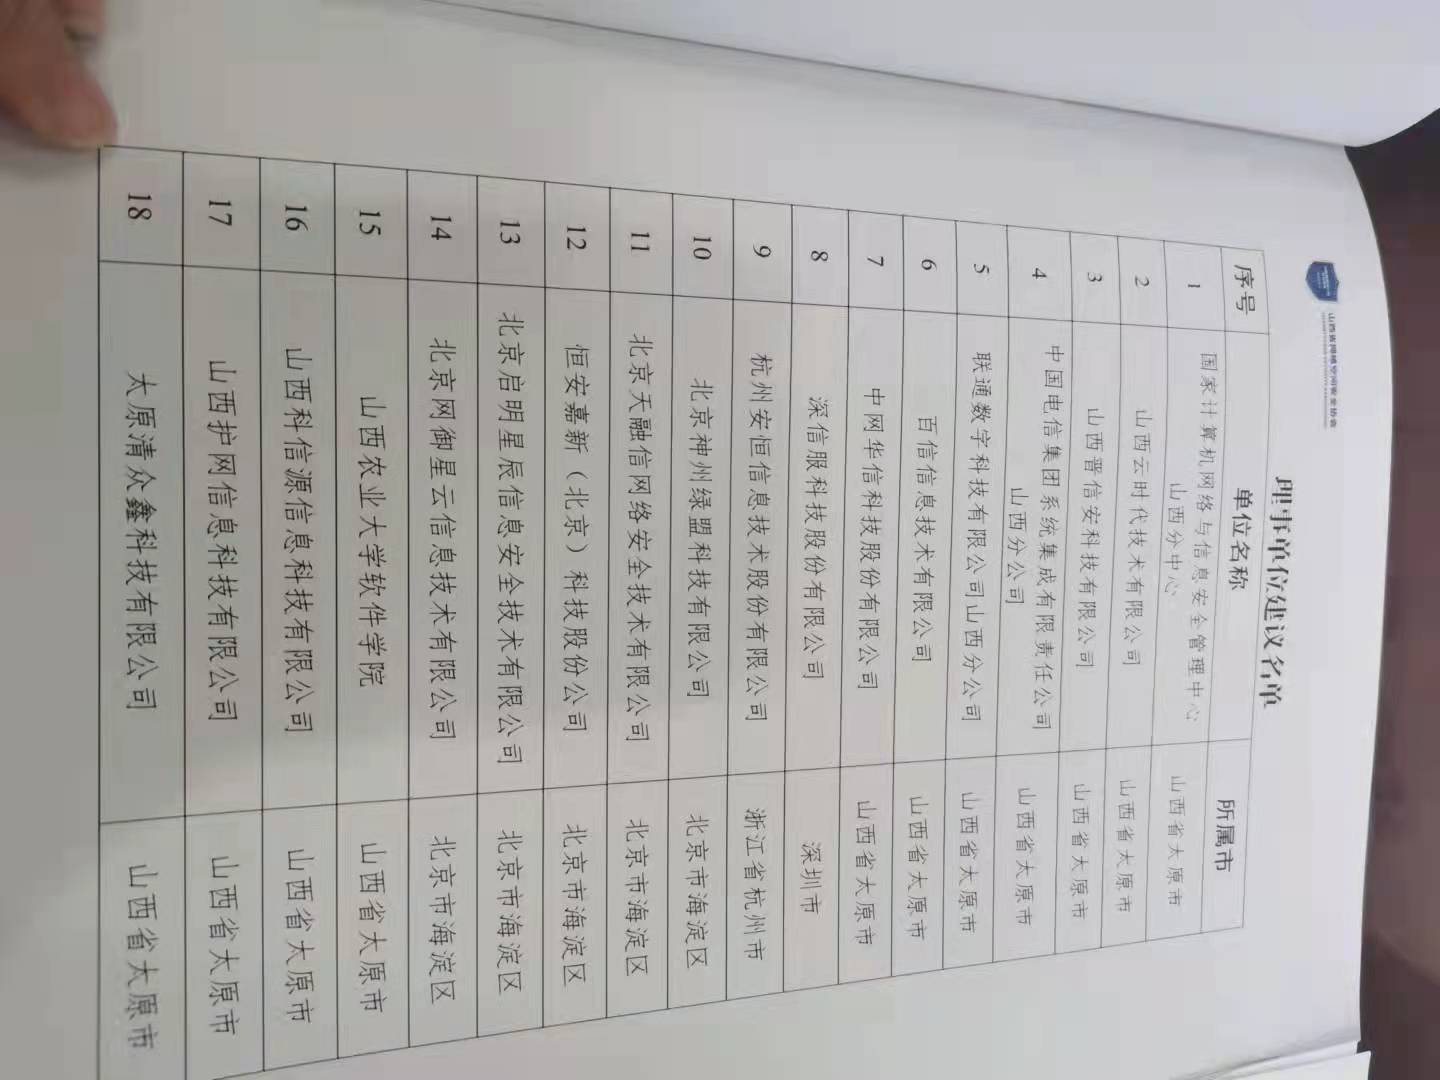 山西省网络空间安全协会
理事单位建议名单
序号 单位名称 所属市
1 国家计算机网络与信息安全管理中心 山西省太原市
山西分中心
2 山西云时代技术有限公司 山西省太原市
3 山西晋信安科技有限公司 山西省太原市
4 中国电信集团系统集成有限责任公司 山西省太原市
山西分公司
5 联通数字科技有限公司山西分公司 山西省太原市
6 百信信息技术有限公司 山西省太原市
7 中网华信科技股份有限公司 山西省太原市
8 深信服科技股份有限公司 深圳市
9 杭州安恒信息技术股份有限公司 浙江省杭州市
10 北京神州绿盟科技有限公司 北京市海淀区
11 北京天融信网络安全技术有限公司 北京市海淀区
12 恒安嘉新（北京）科技股份公司 北京市海淀区
13 北京启明星辰信息安全技术有限公司 北京市海淀区
14 北京网御星云信息技术有限公司 北京市海淀区
15 山西农业大学软件学院 山西省太原市
16 山西科信源信息科技有限公司 山西省太原市
17 山西护网信息科技有限公司 山西省太原市
18 太原清众鑫科技有限公司 山西省太原市